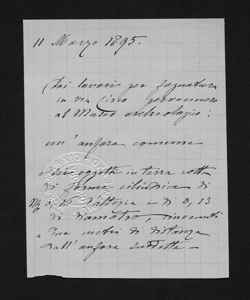 11 Marzo 1895.
Dai lavori per fognatura
in via Circo pervennero
al Museo archeologico:
un'anfora comune
oggetto in terra cotta
di forma cilindrica di
0, d'altezza - di 0,13
di diametro, rinvenuti
a due metri di distanza
dall'anfora suddetta -